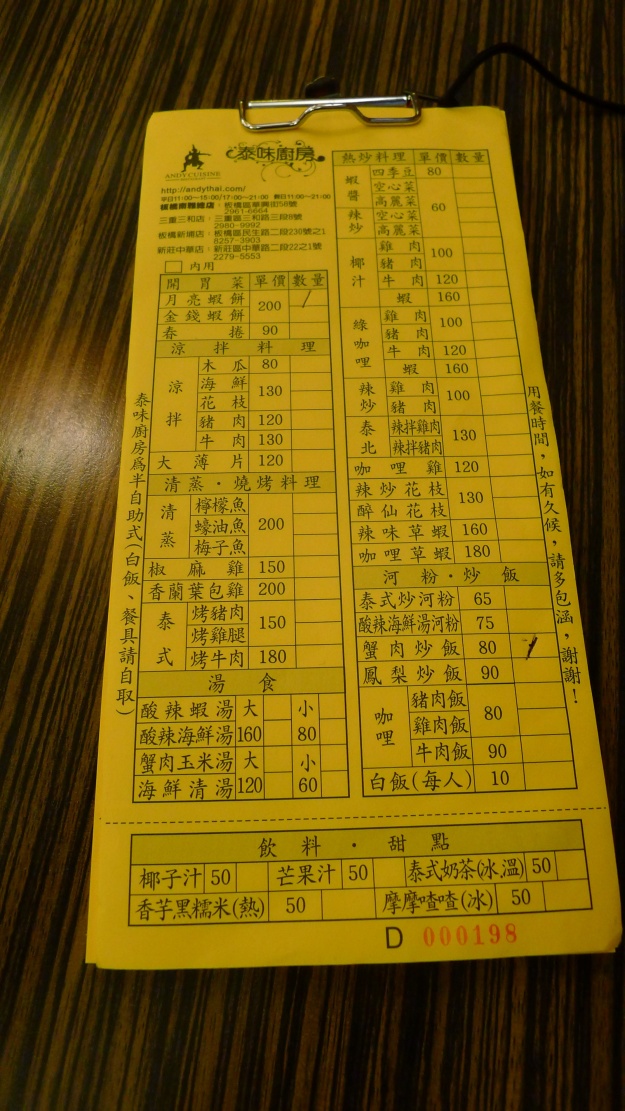 ANDYCUISINE
泰味廚房
http://andythai.com/
平日11:00～15:00/17:00～21:00 假日11:00～21:00
板橋南雅總店：板橋區華興街58號
2961-6664
三重三和店：三重區三和路三段8號
2980-9992
板橋新埔店：板橋區民生路二段230號之1
8257-3903
新莊中華店：新莊區中華路二段22之1號
2279-5553
內用
開胃菜 單價 數量
月亮蝦餅 200
金錢蝦餅
春捲 90
涼拌料理
涼拌
木瓜 80
海鮮 130
花枝
豬肉 120
牛肉 130
大薄片 120
清蒸·燒烤料理
清蒸
檸檬魚 200
蠔油魚
梅子魚
椒麻雞 150
香蘭葉包雞 200
泰式
烤豬肉 150
烤雞腿
烤牛肉 180
湯食
酸辣蝦湯 大 小
酸辣海鮮湯 160 80
蟹肉玉米湯 大 小
海鮮清湯 120 60
熱炒料理 單價 數量
蝦醬
四季豆 80
空心菜 60
高麗菜
辣炒
空心菜
高麗菜
椰汁
雞肉 100
豬肉
牛肉 120
蝦 160
綠咖哩
雞肉 100
豬肉
牛肉 120
蝦 160
辣炒
雞肉 100
豬肉
泰北
辣拌雞肉 130
辣拌豬肉
咖哩雞 120
辣炒花枝 130
醉仙花枝
辣味草蝦 160
咖哩草蝦 180
河粉·炒飯
泰式炒河粉 65
酸辣海鮮湯河粉 75
蟹肉炒飯 80
鳳梨炒飯 90
咖哩
豬肉飯 80
雞肉飯
牛肉飯 90
白飯(每人) 10
泰味廚房為半自助式(白飯、餐具請自取)
用餐時間，如有久候，請多包涵，謝謝！
飲料·甜點
椰子汁 50 芒果汁 50 泰式奶茶(冰,溫) 50
香芋黑糯米(熱) 50 摩摩喳喳(冰) 50
D 000198